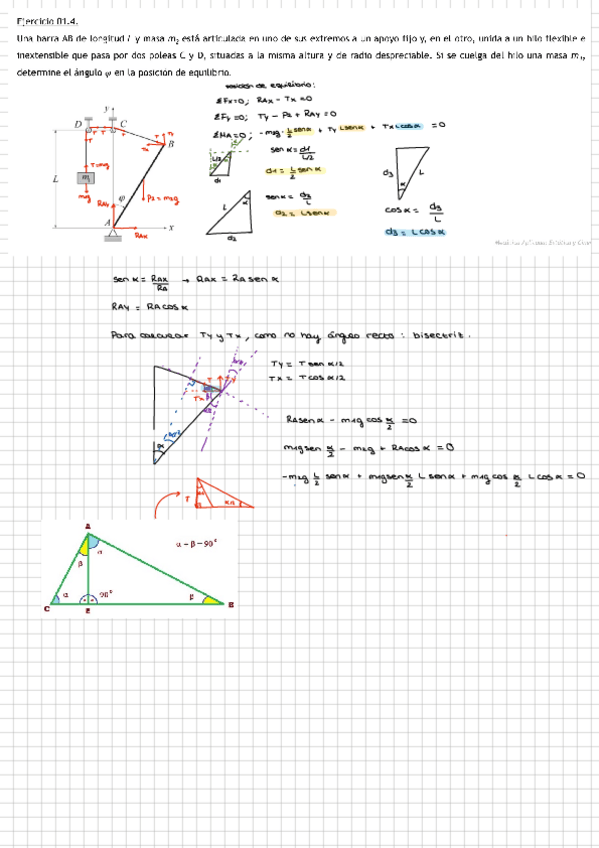 Ejercicio 01.4.
Una barra AB de longitud L y masa m₂ está articulada en uno de sus extremos a un apoyo fijo y, en el otro, unida a un hilo flexible e
inextensible que pasa por dos poleas C y D, situadas a la misma altura y de radio despreciable. Si se cuelga del hilo una masa m₁,
determine el ángulo φ en la posición de equilibrio.
posición de equilibrio:
ΣFx=0; RAx - Tx = 0
ΣFy=0; Ty - P2 + RAy = 0
ΣMA=0; -m2g · L/2 senα + Ty Lsenα + Tx Lcosα = 0
y
D C
T T
Ty
Tx
B
T
T=m1g
L
m1
φ
m1g
P2 = m2g
RAy
A
x
RAx
L/2
d1
sen α = d1/L/2
d1 = L/2 senα
L
α
d2
senα = d2/L
d2 = Lsenα
d3
L
α
cosα = d3/L
d3 = L cosα
sen α = RAx/RA → RAx = RA sen α
RAy = RA cos α
Para calcular Ty y Tx, como no hay ángulo recto: bisectriz.
Ty = T sen α/2
Tx = T cos α/2
T
Tx
α
α/2
RAsenα - m1g cos α/2 = 0
m1g sen α/2 - m2g + RAcosα = 0
-m2g L/2 senα + m1g sen α/2 L senα + m1g cos α/2 L cosα = 0
T
A
α-β-90°
β
α
α
90°
β
C
E
B